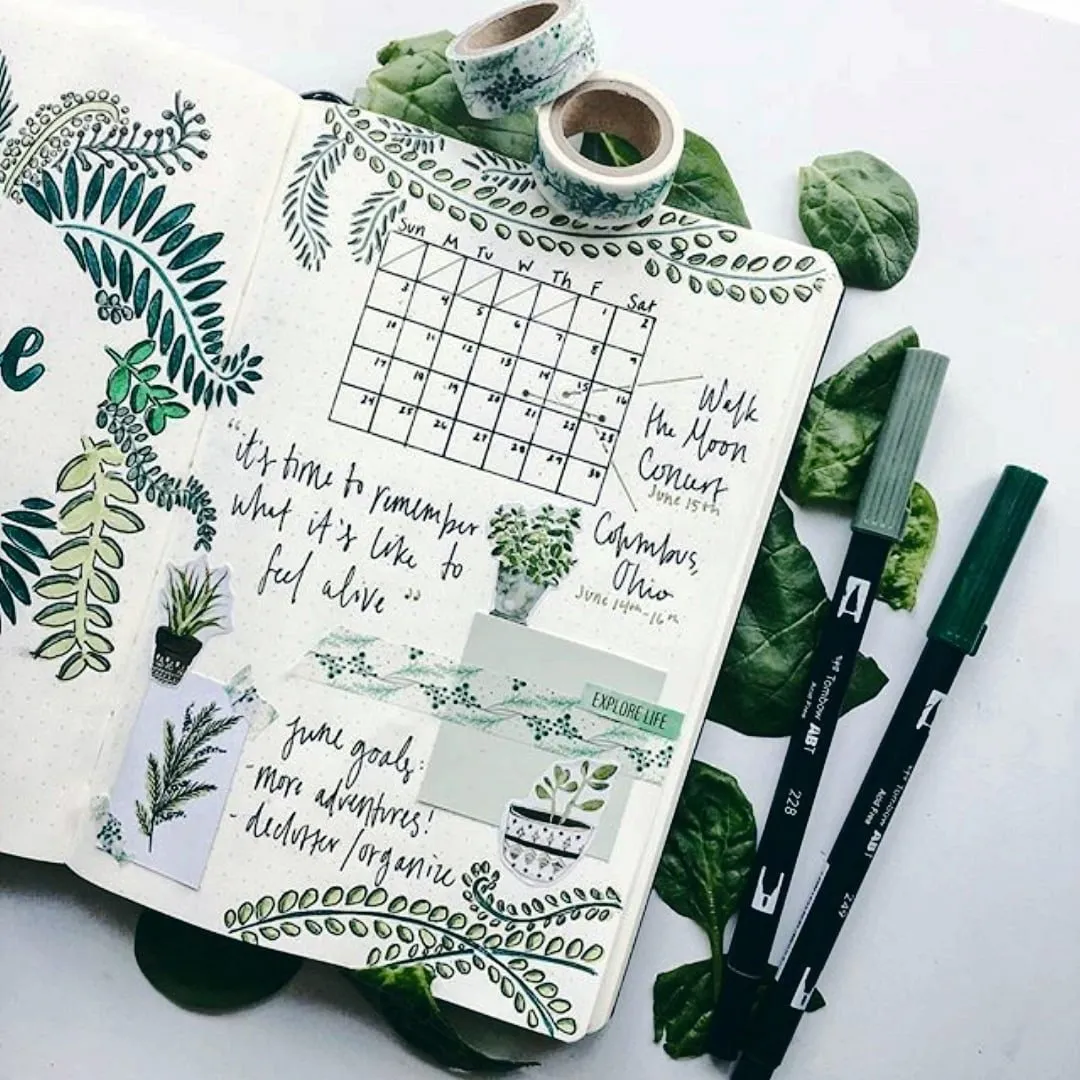 e
Sun M Tu W Th F Sat
1 2
3 4 5 6 7 8 9
10 11 12 13 14 15 16
17 18 19 20 21 22 23
24 25 26 27 28 29 30
Walk
the Moon
Concert
June 15th
Columbus,
Ohio
June 14th-16th
"it's time to remember
what it's like to
feel alive"
EXPLORE LIFE
June goals:
-more adventures!
-declutter/organize
Tombow ABT
Acid Free
228
Tombow ABT
Acid Free
249